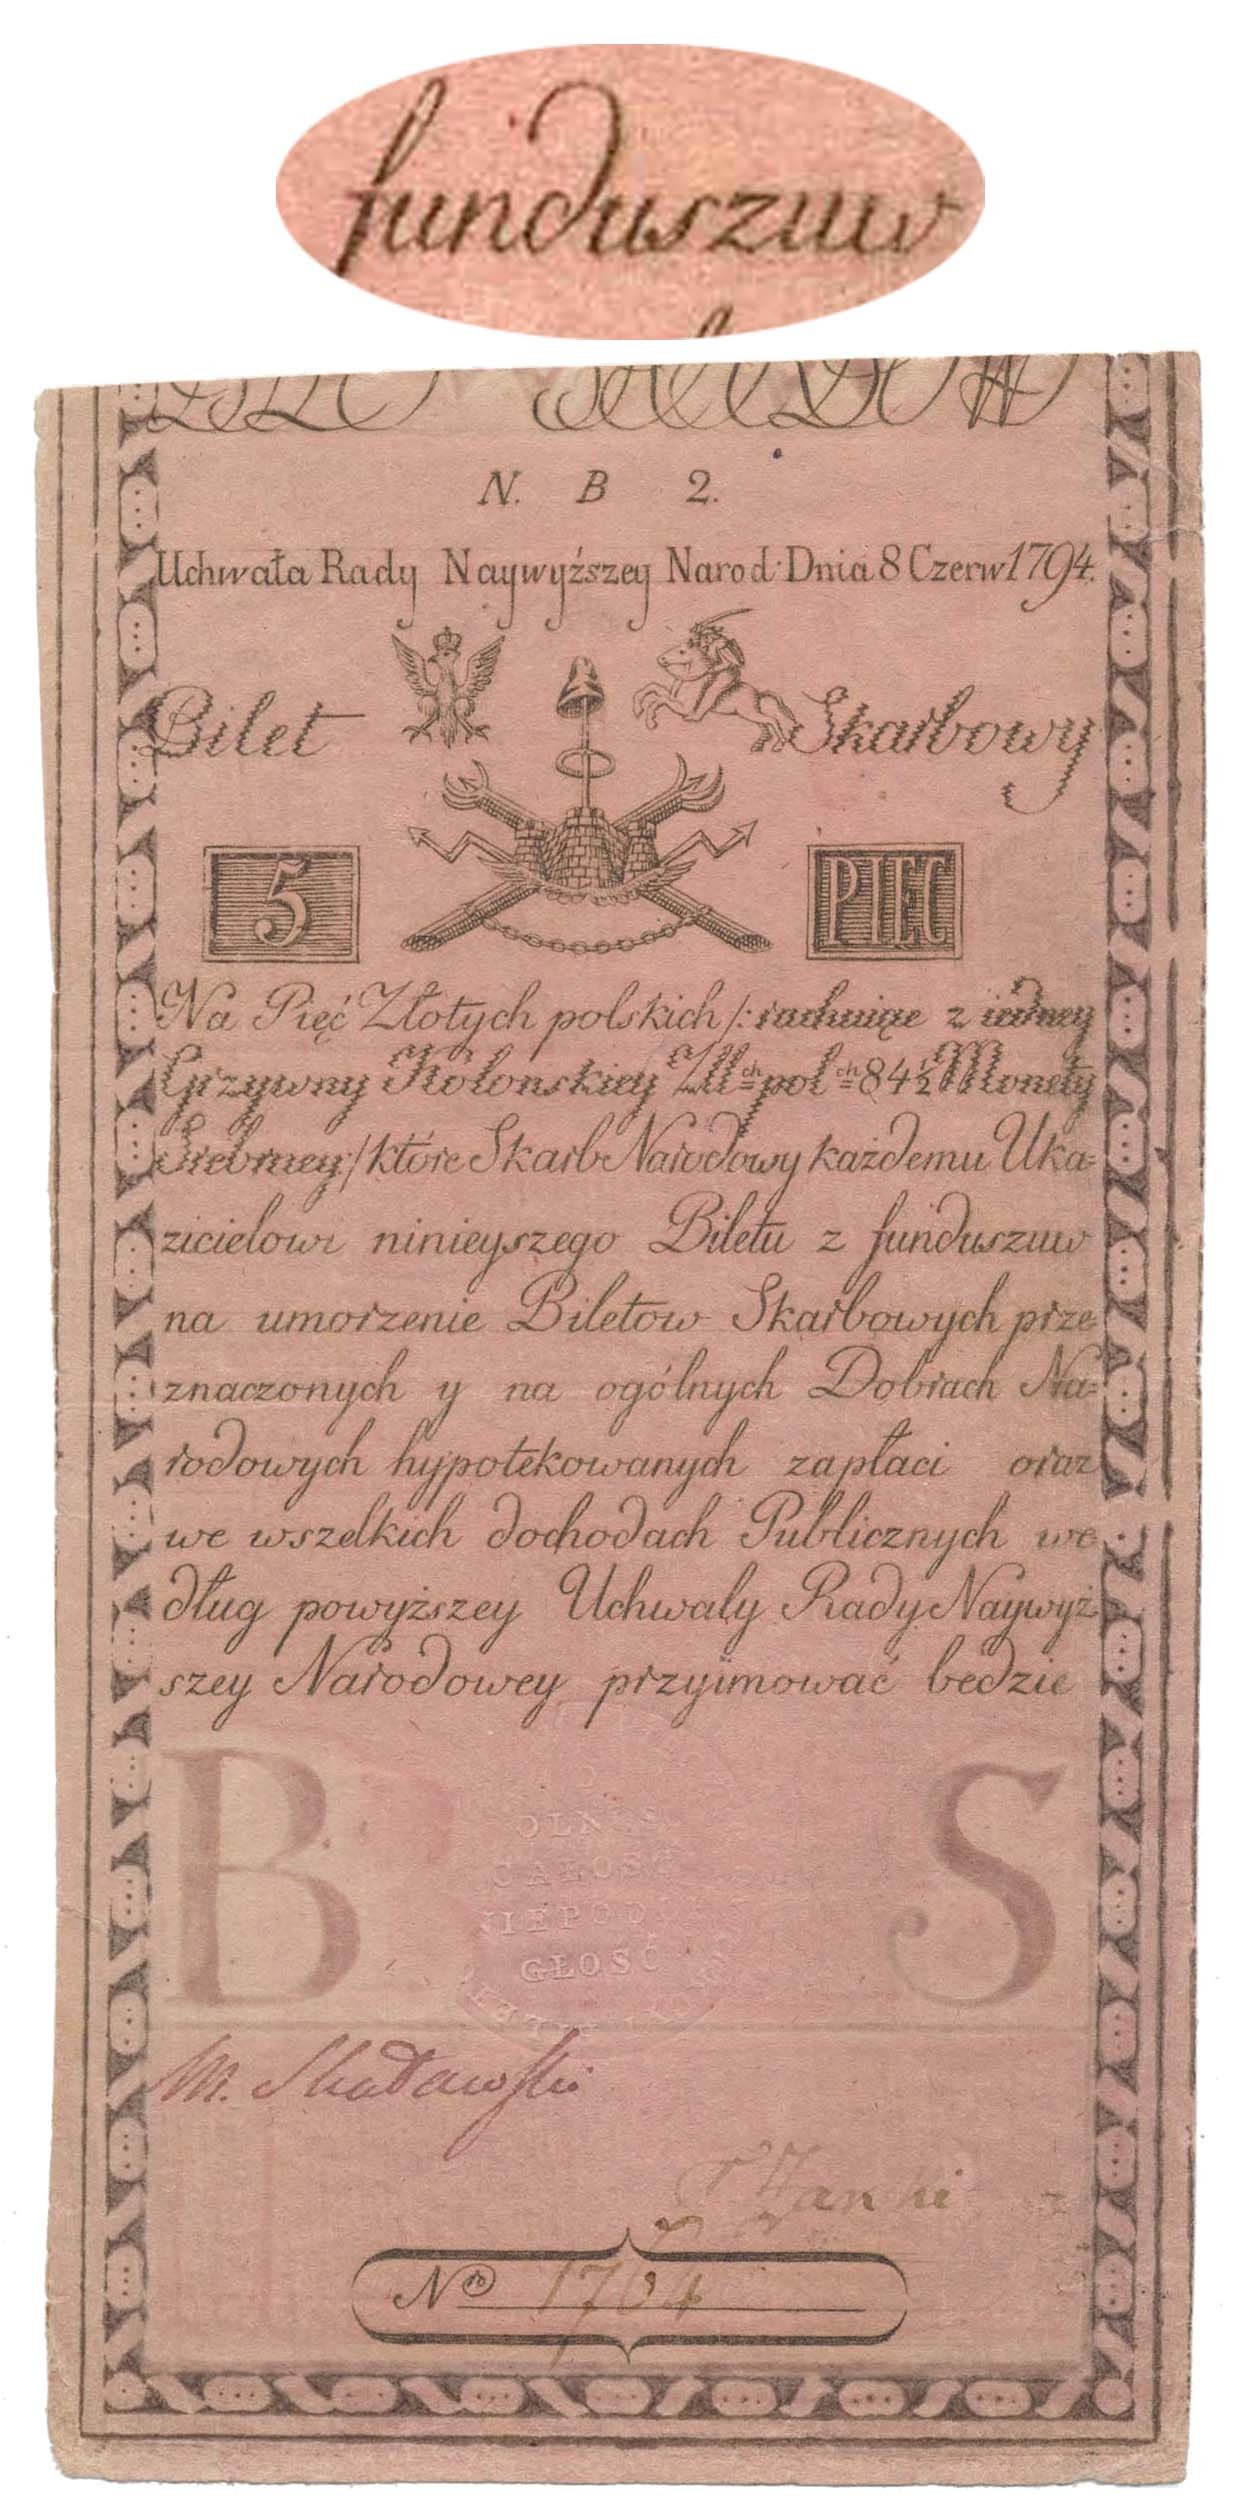 funduszuw
N. B 2.
Uchwała Rady Naywyższey Narod. Dnia 8 Czerw 1794.
Bilet Skarbowy
5 PIĘC
Na Pięć Złotych polskich /: rachuiąc z iedney
Grzywny Kolonskiey Zll ch pol ch 84 1/2 Monety
Srebrney :/ które Skarb Narodowy każdemu Uka=
zicielowi ninieyszego Biletu z funduszuw
na umorzenie Biletow Skarbowych prze
znaczonych y na ogólnych Dobrach Na=
rodowych hypotekowanych zapłaci oraz
we wszelkich dochodach Publicznych we
dług powyższey Uchwały Rady Naywyż
szey Narodowey przyimować bedzie
B S
OLNOS
CAŁOSC
NIEPOD
GŁOSĆ
M. Skadawski
No 1764